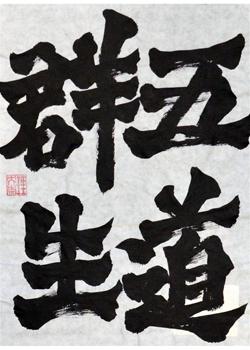 五道
群生